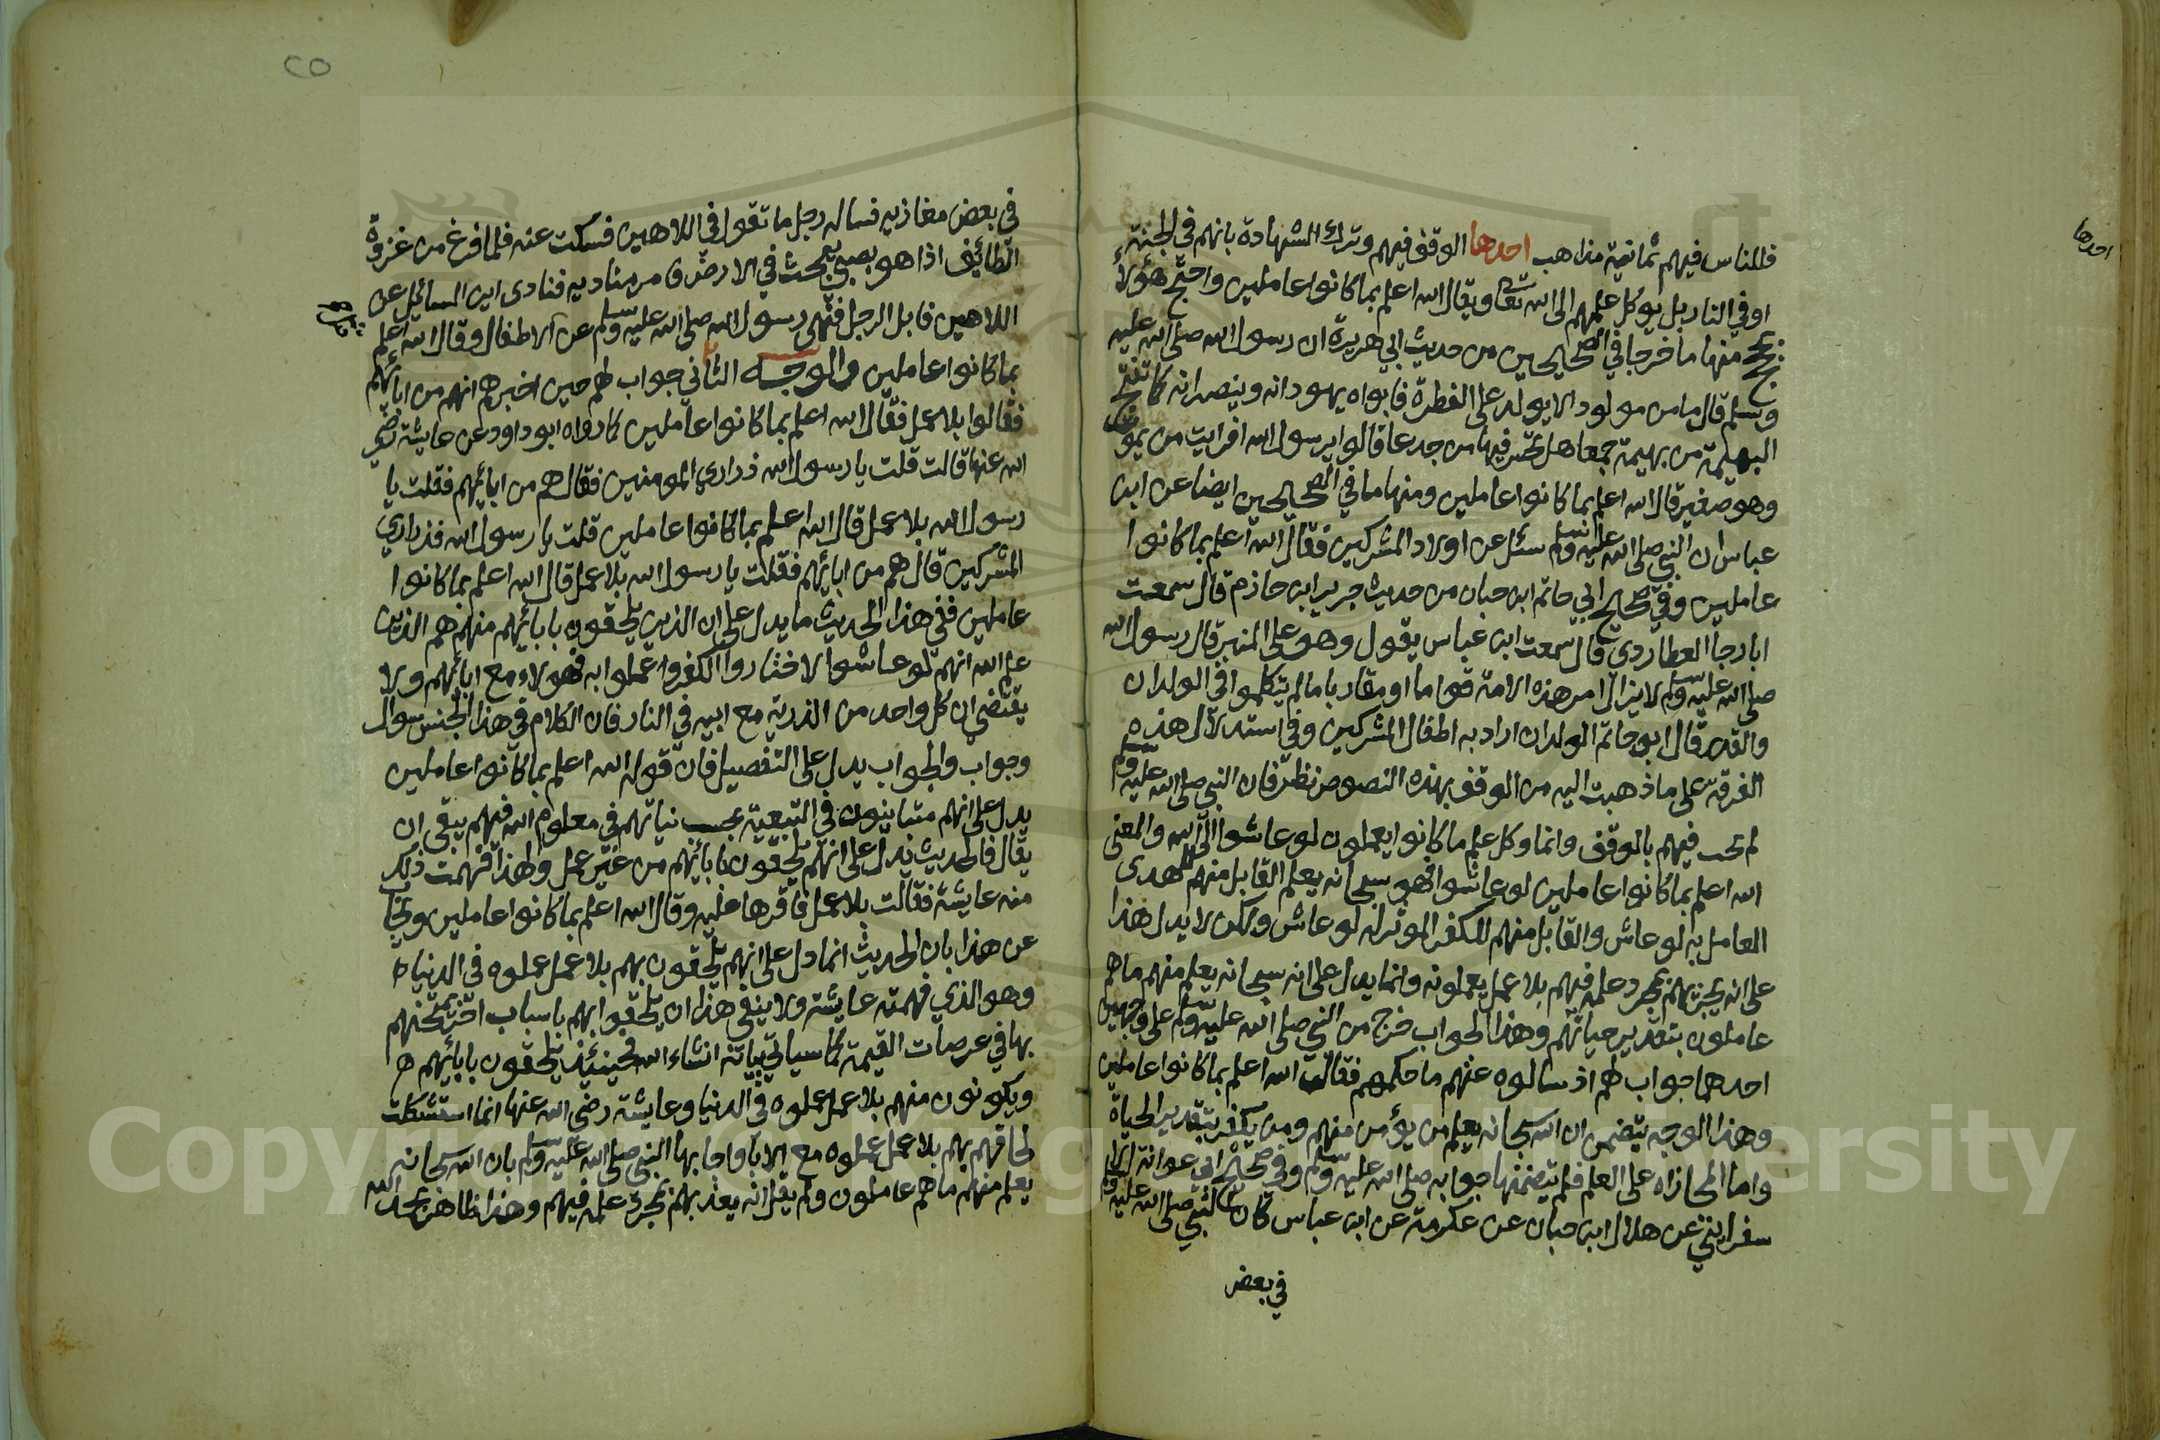 احدها
فللناس فيهم ثمانية مذاهب احدها الوقف فيهم وترك الشهادة بانهم في الجنة
او في النار بل يوكل علمهم الى الله تعالى ويقال الله اعلم بما كانوا عاملين واحتج هؤلاء
بحجج منها ما خرجا في الصحيحين من حديث ابي هريرة ان رسول الله صلى الله عليه
وسلم قال ما من مولود الا يولد على الفطرة فابواه يهودانه وينصرانه كما تنتج
البهيمة من بهيمة جمعا هل تحس فيها من جدعا قالوا يرسول الله افرايت من يموت
وهو صغير قال الله اعلم بما كانوا عاملين ومنها ما في الصحيحين ايضا عن ابن
عباس ان النبي صلى الله عليه وسلم سئل عن اولاد المشركين فقال الله اعلم بما كانوا
عاملين وفي صحيح ابي حاتم ابن حبان من حديث جرير ابن حازم قال سمعت
ابا رجا العطاردي قال سمعت ابن عباس يقول وهو على المنبر قال رسول الله
صلى الله عليه وسلم لا يزال امر هذه الامة قواما او مقاربا ما لم يتكلموا في الولدان
والقدر قال ابو حاتم الولدان اراد به اطفال المشركين وفي استدلال هذه
الفرقة على ما ذهبت اليه من الوقف بهذه النصوص نظر فان النبي صلى الله عليه وسلم
لم يجب فيهم بالوقف وانما وكل علم ما كانوا يعملون لو عاشوا الى الله والمعنى
الله اعلم بما كانوا عاملين لو عاشوا فهو سبحانه يعلم القابل منهم للهدى
العامل به لو عاش والقابل منهم للكفر الموثر له لو عاش ولكن لا يدل هذا
على انه يجزيهم بمجرد علمه فيهم بلا عمل يعملونه وانما يدل على انه سبحانه يعلم منهم ما هم
عاملون بتقدير حياتهم وهذا الجواب خرج من النبي صلى الله عليه وسلم على وجهين
احدهما جواب لهم اذ سالوه عنهم ما حكمهم فقال الله اعلم بما كانوا عاملين
وهذا الوجه يتضمن ان الله سبحانه يعلم من يؤمن منهم ومن يكفر بتقدير الحياة
واما المجازاه على العلم فلم يتضمنها جوابه صلى الله عليه وسلم وفي صحيح ابي عوانة الا
سفرايني عن هلال ابن حبان عن عكرمة عن ابن عباس كان النبي صلى الله عليه وسلم
في بعض
٢٥
في بعض مغازيه فساله رجل ما تقول في اللاهين فسكت عنه فلما فرغ من غزوة
الطائف اذا هو بصبي يبحث في الارض فنادى اين السائل عن
اللاهين فاقبل الرجل فنهى رسول الله صلى الله عليه وسلم عن الاطفال وقال الله اعلم
بما كانوا عاملين والوجه الثاني جواب لهم حين اخبرهم انهم من ابايهم
فقالوا بلا عمل فقال الله اعلم بما كانوا عاملين كما رواه ابو داود عن عايشة رضي
الله عنها قالت قلت يا رسول الله ذراري المومنين فقال هم من ابايهم فقلت يا
رسول الله بلا عمل قال الله اعلم بما كانوا عاملين قلت يا رسول الله فذراري
المشركين قال هم من ابائهم فقلت يا رسول الله بلا عمل قال الله اعلم بما كانوا
عاملين ففي هذا الحديث ما يدل على ان الذين يلحقون بابائهم منهم هم الذين
علم الله انهم لو عاشوا لاختاروا الكفر وعملوا به فهولاء مع ابائهم ولا
يقتضي ان كل واحد من الذرية مع ابيه في النار فان الكلام في هذا الجنس سوال
وجواب والجواب يدل على التفصيل فان قوله الله اعلم بما كانوا عاملين
يدل على انهم متباينون في التبعية بحسب نياتهم في معلوم الله فيهم يبقى ان
يقال فالحديث يدل على انهم يلحقون بابائهم من غير عمل ولهذا فهمت ذلك
منه عايشة فقالت بلا عمل فاقرها عليه وقال الله اعلم بما كانوا عاملين ويجاب
عن هذا بان الحديث انما دل على انهم يلحقون بهم بلا عمل عملوه في الدنيا
وهو الذي فهمته عايشة ولا ينفي هذا ان يلحقوا بهم باسباب اخر يمتحنهم
بها في عرصات القيمة كما سياتي بيانه انشاء الله فحينئذ يلحقون بابائهم
ويكونون منهم بلا عمل عملوه في الدنيا وعايشة رضي الله عنها انما استشكلت
لحاقهم بهم بلا عمل عملوه مع الابا واجابها النبي صلى الله عليه وسلم بان الله سبحانه
يعلم منهم ما هم عاملون ولم يقل انه يعذبهم بمجرد علمه فيهم وهذا ظاهر بحمد الله